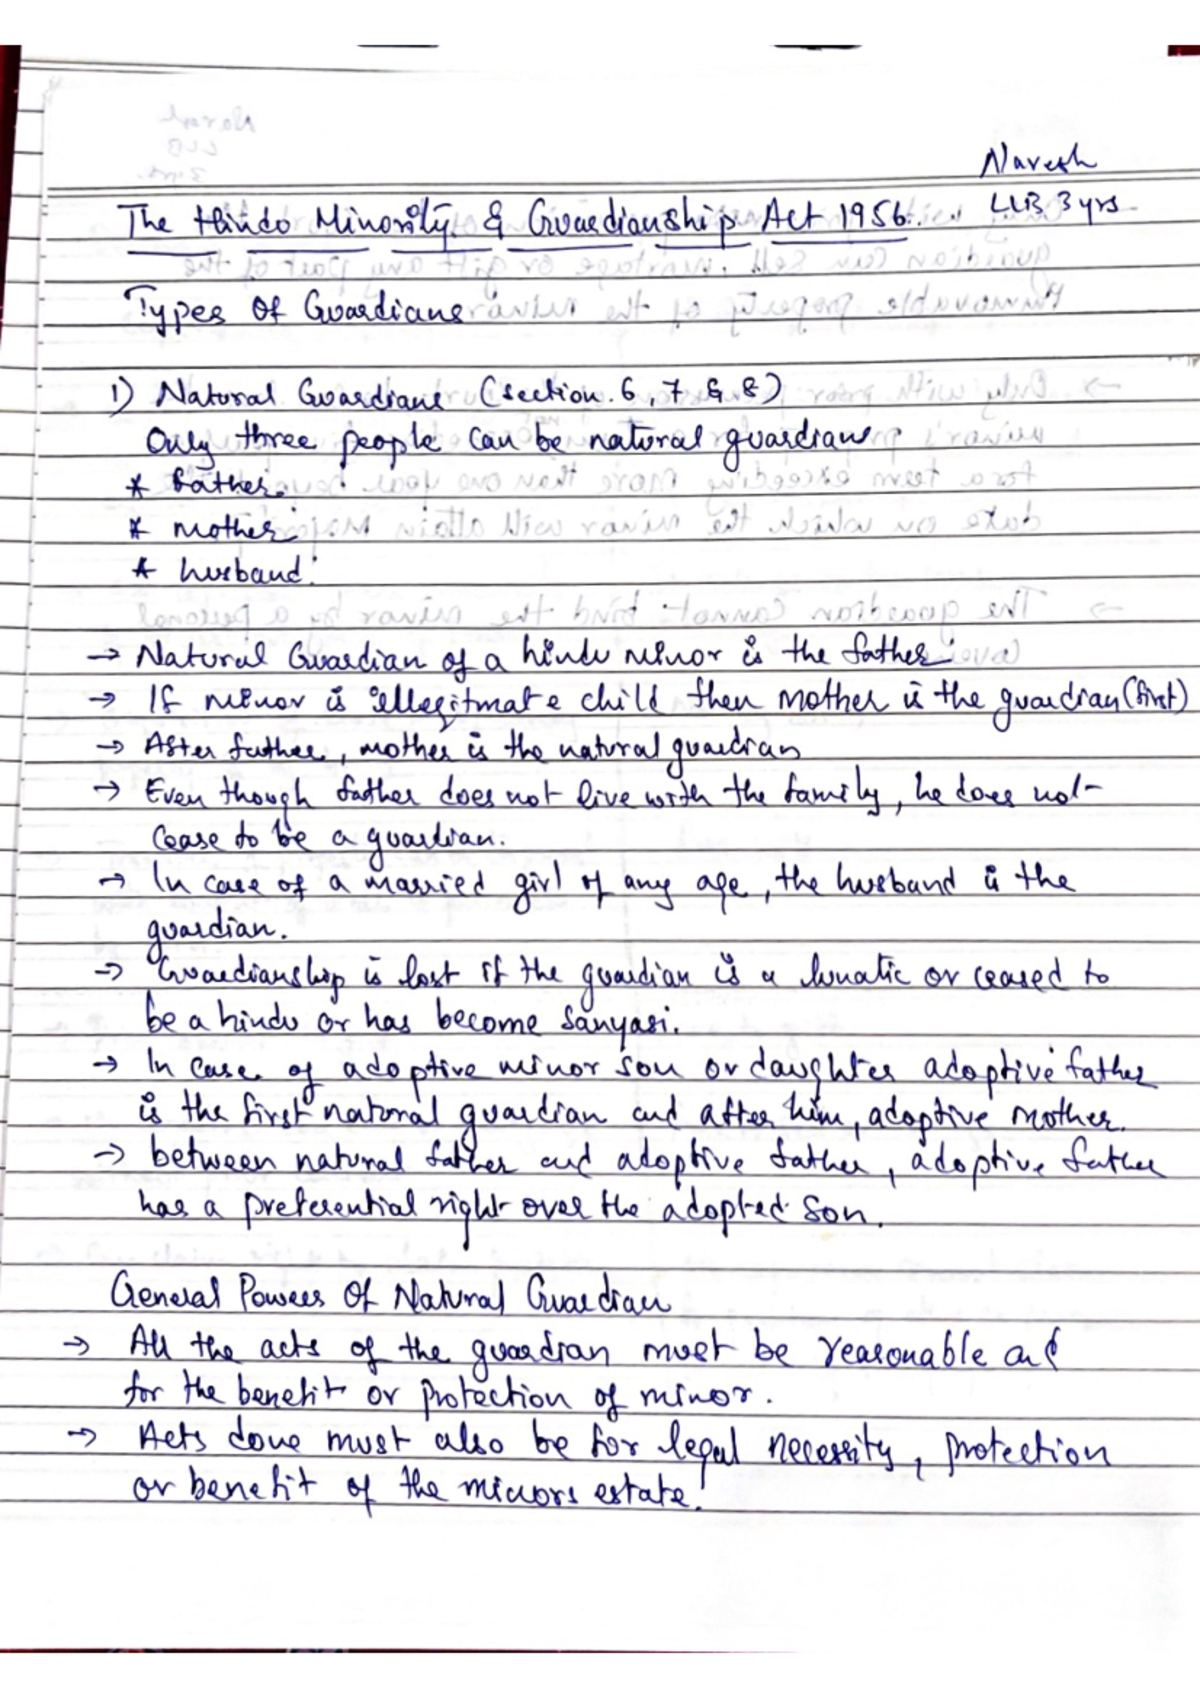 Naresh
LLB 3 yrs
The Hindu Minority & Guardianship Act 1956.
Types Of Guardians
1) Natural Guardians (section. 6, 7 & 8)
Only three people can be natural guardians
* Father.
* mother
* husband.
→ Natural Guardian of a hindu minor is the father
→ If minor is illegitmate child then mother is the guardian (first)
→ After father, mother is the natural guardian
→ Even though father does not live with the family, he does not
cease to be a guardian.
→ In case of a married girl of any age, the husband is the
guardian.
→ Guardianship is lost if the guardian is a lunatic or ceased to
be a hindu or has become Sanyasi.
→ In case of adoptive minor son or daughter adoptive father
is the first natural guardian and after him, adoptive mother.
→ between natural father and adoptive father, adoptive father
has a preferential right over the adopted son.
General Powers Of Natural Guardian
→ All the acts of the guardian must be reasonable and
for the benefit or protection of minor.
→ Acts done must also be for legal necessity, protection
or benefit of the minors estate.